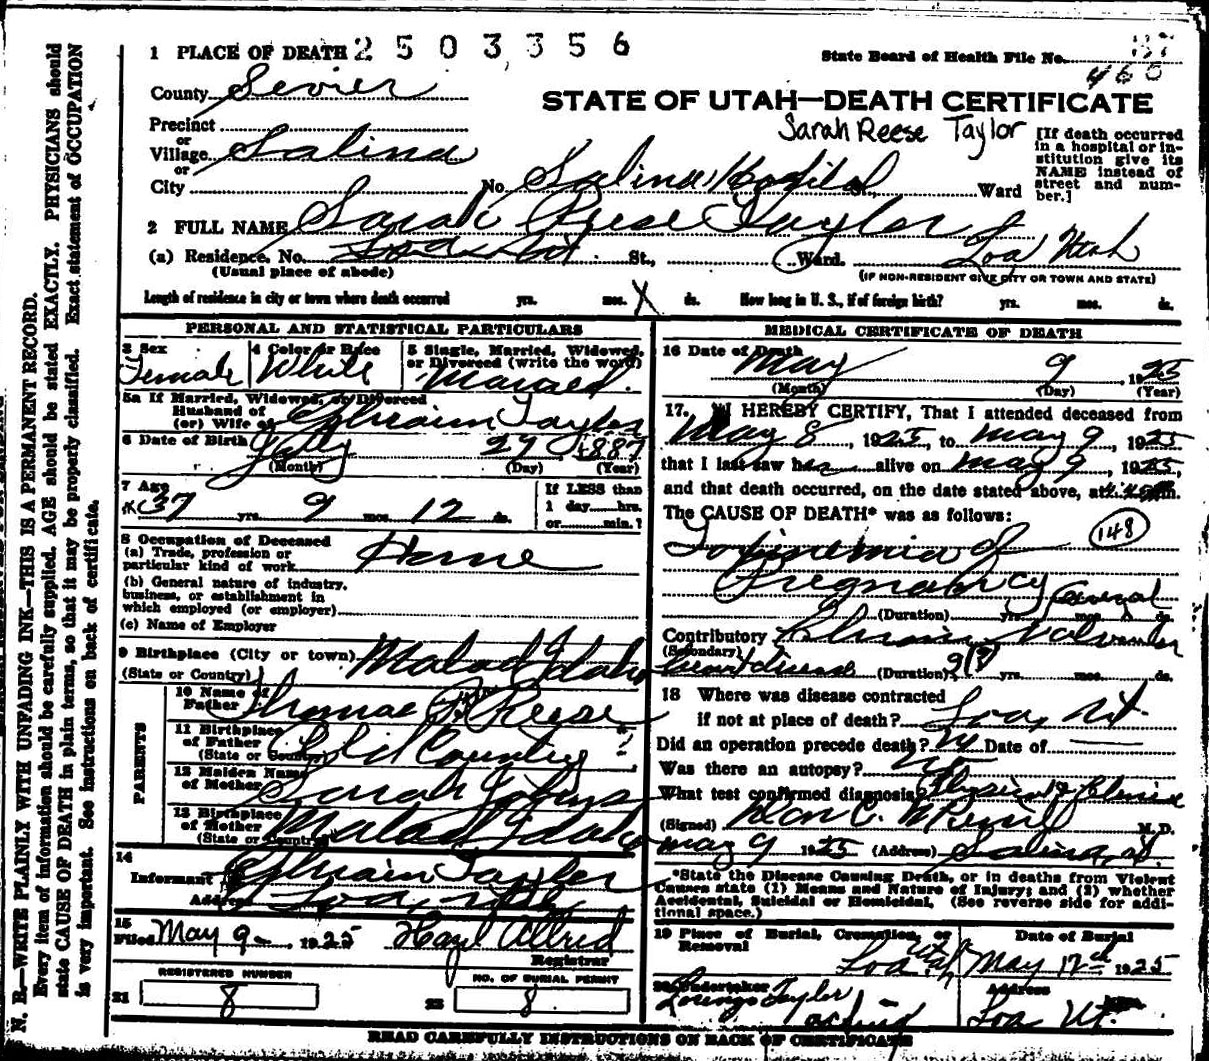 1 PLACE OF DEATH 2503356
State Board of Health File No. 
460
County Sevier
STATE OF UTAH—DEATH CERTIFICATE
Precinct
or
Village Salina
or
City No. Salina Hospital Ward
Sarah Reese Taylor
[If death occurred
in a hospital or in-
stitution give its
NAME instead of
street and num-
ber.]
2 FULL NAME Sarah Reese Taylor
(a) Residence, No. St., Ward. Loa Utah
(Usual place of abode)
(IF NON-RESIDENT GIVE CITY OR TOWN AND STATE)
Length of residence in city or town where death occurred yrs. mos. ds. How long in U. S., if of foreign birth? yrs. mos. ds.
PERSONAL AND STATISTICAL PARTICULARS
3 Sex
Female
4 Color or Race
White
5 Single, Married, Widowed,
or Divorced (write the word)
Married
5a If Married, Widowed, or Divorced
Husband of
(or) Wife of Ephraim Taylor
6 Date of Birth July 27 1887
(Month) (Day) (Year)
7 Age
37 yrs. 9 mos. 12 ds.
If LESS than
1 day hrs.
or min.?
8 Occupation of Deceased
(a) Trade, profession or
particular kind of work Home
(b) General nature of industry,
business, or establishment in
which employed (or employer)
(c) Name of Employer
9 Birthplace (City or town) Malad Idaho
(State or Country)
PARENTS
10 Name of
Father Thomas Reese
11 Birthplace
of Father
(State or Country) County ?
12 Maiden Name
of Mother Sarah Johns
13 Birthplace
of Mother Malad Idaho
(State or Country)
14
Informant Ephraim Taylor
Address Loa, Utah
15
Filed May 9 1925 Hazel Allred
Registrar
REGISTERED NUMBER
21 8
NO. OF BURIAL PERMIT
22 8
MEDICAL CERTIFICATE OF DEATH
16 Date of Death
May 9, 1925
(Month) (Day) (Year)
17. I HEREBY CERTIFY, That I attended deceased from
May 8, 1925, to May 9, 1925
that I last saw her alive on May 9, 1925,
and that death occurred, on the date stated above, at m.
The CAUSE OF DEATH* was as follows:
148
Toxinemia of
Pregnancy Several
(Duration) yrs. mos. ds.
Contributory Chronic Valvular
(Secondary)
heart disease (Duration) 9(?) yrs. mos. ds.
18 Where was disease contracted
if not at place of death? Loa, Ut.
Did an operation precede death? No Date of —
Was there an autopsy? No
What test confirmed diagnosis? Physical & Clinical
(Signed) M.D.
May 9 1925 (Address) Salina, Ut.
*State the Disease Causing Death, or in deaths from Violent
Causes state (1) Means and Nature of Injury; and (2) whether
Accidental, Suicidal or Homicidal. (See reverse side for addi-
tional space.)
19 Place of Burial, Cremation, or
Removal
Loa Utah
Date of Burial
May 12th 1925
20 Undertaker
Lorenzo Taylor
Address
Loa Ut.
READ CAREFULLY INSTRUCTIONS ON BACK OF CERTIFICATE
N. B.—WRITE PLAINLY WITH UNFADING INK—THIS IS A PERMANENT RECORD.
Every item of information should be carefully supplied. AGE should be stated EXACTLY. PHYSICIANS should
state CAUSE OF DEATH in plain terms, so that it may be properly classified. Exact statement of OCCUPATION
is very important. See instructions on back of certificate.